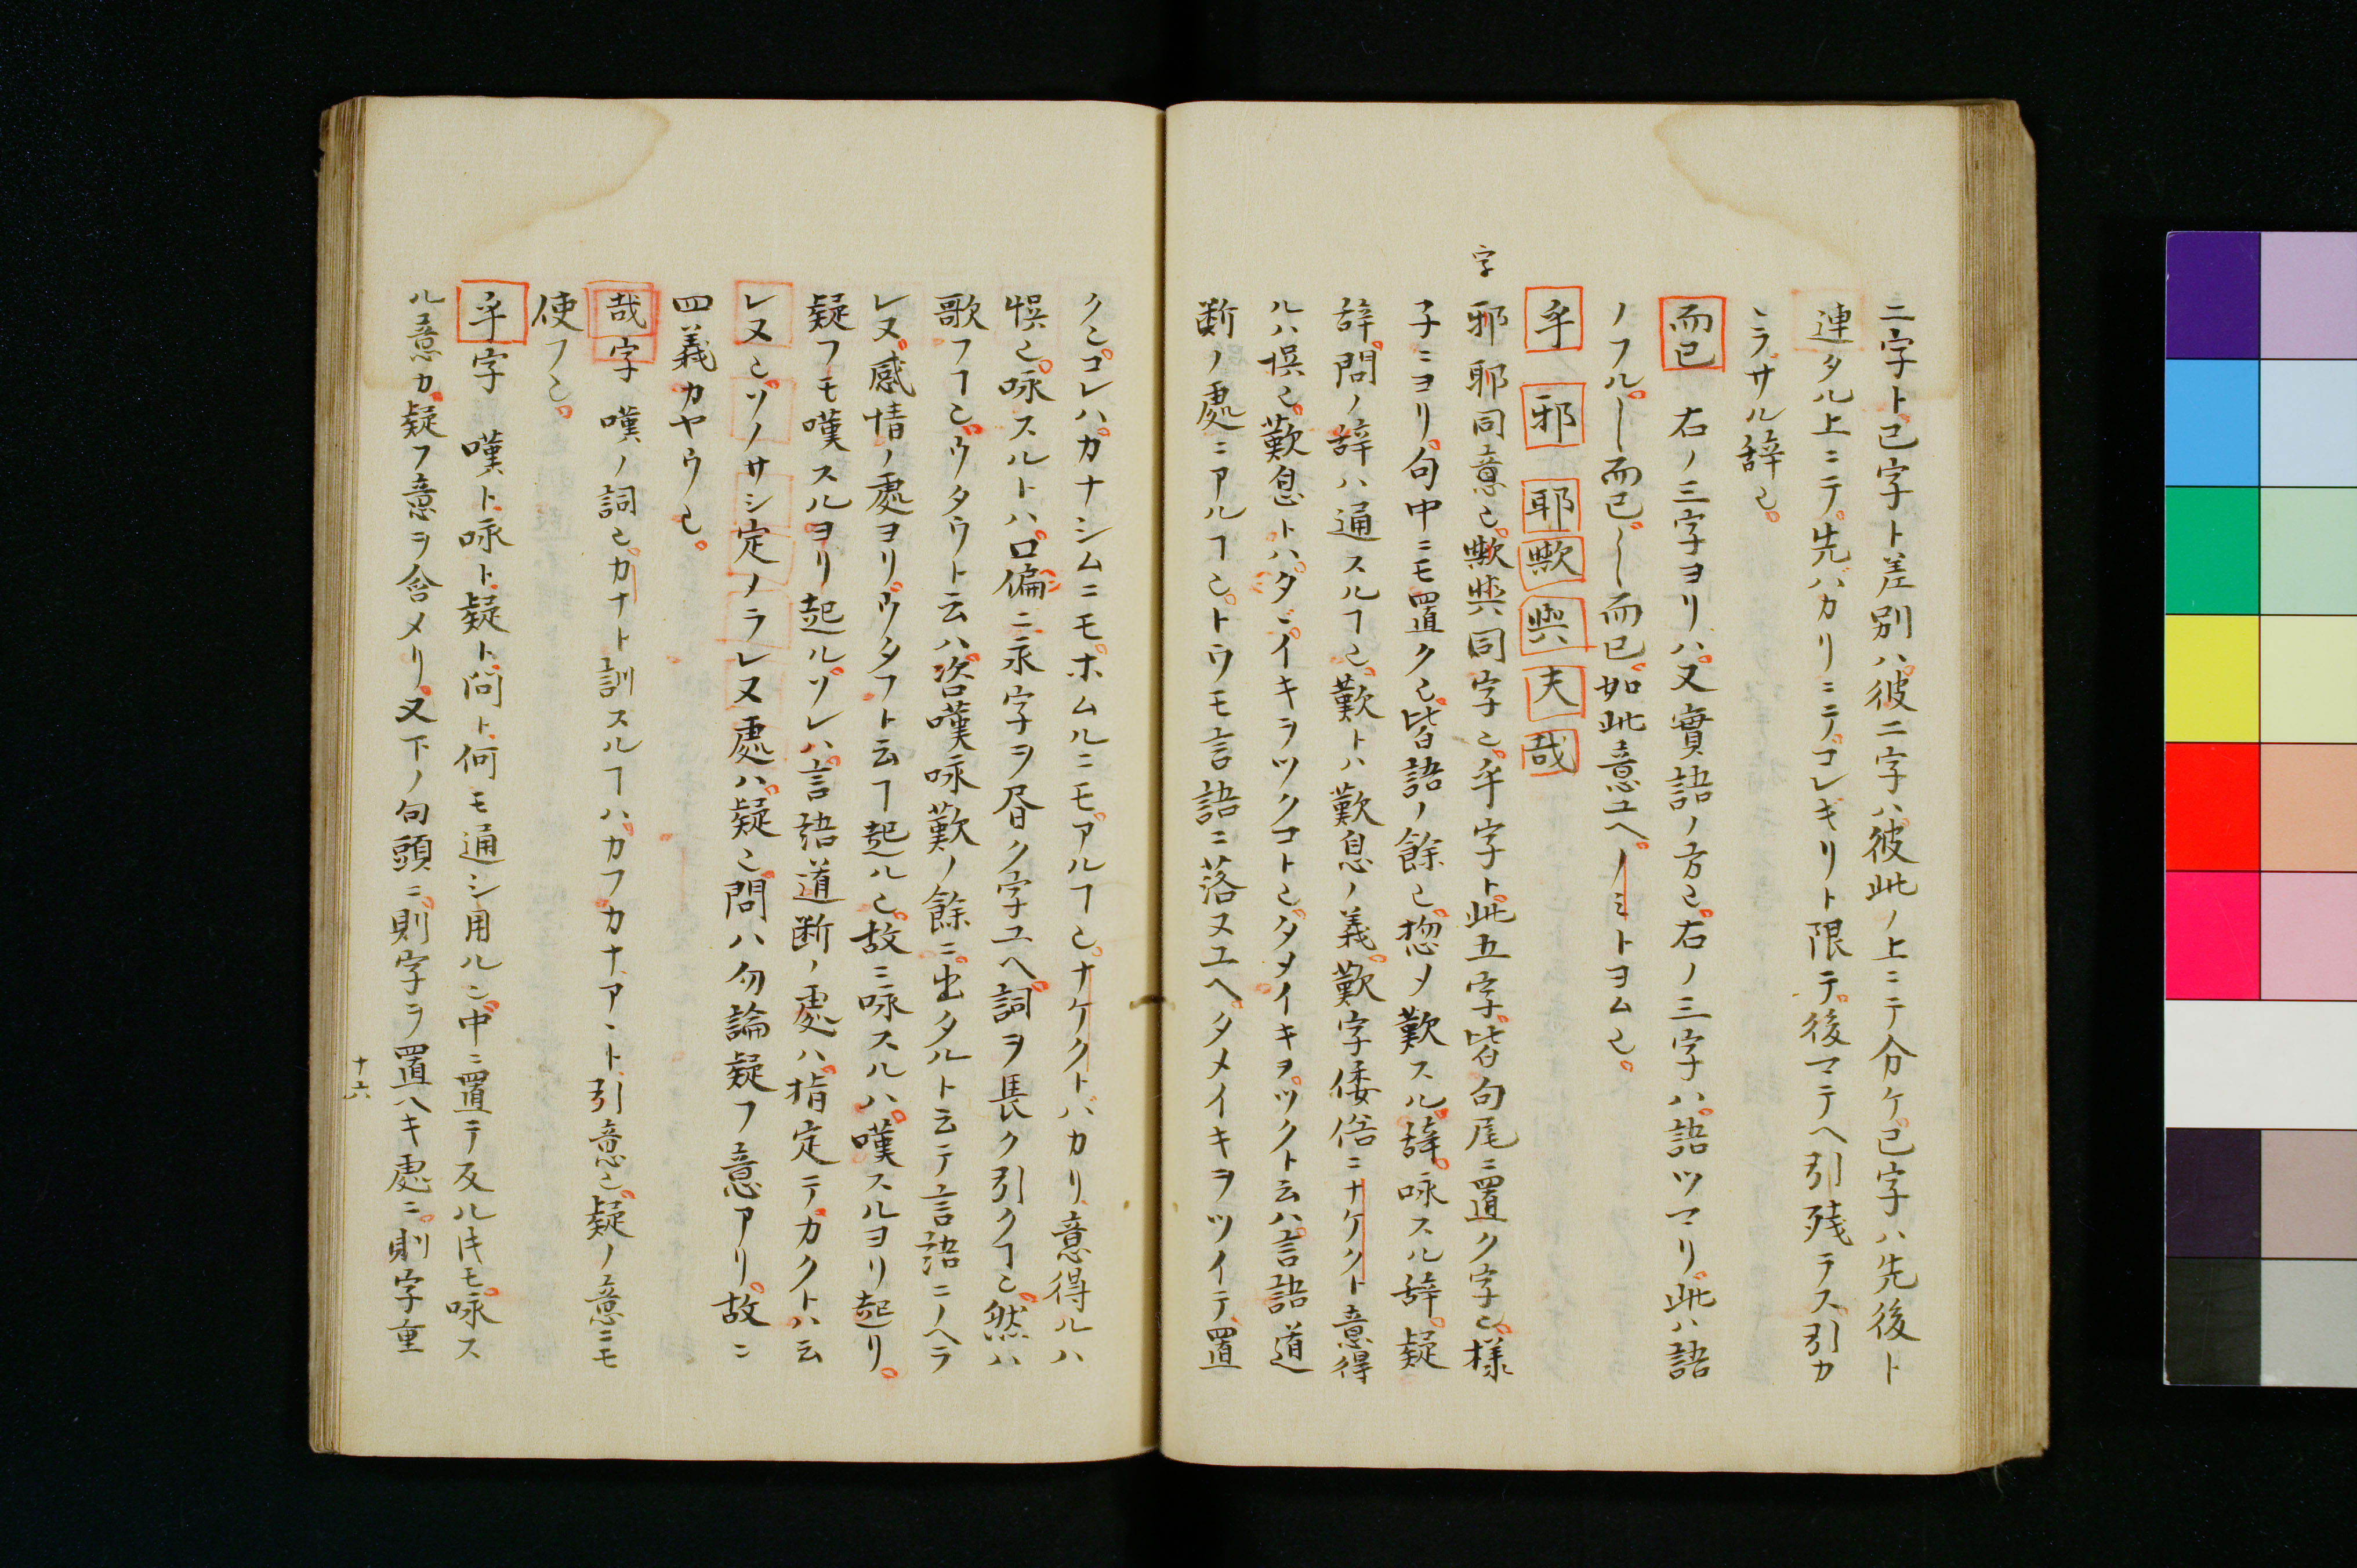 二字ト已字ト差別ハ。彼二字ハ。彼此ノ上ニテ分ケ。已字ハ先後ト
連タル上ニテ。先バカリニテ。コレギリト限テ。後マテヘ引残テス。引カ
ヽラザル辞也。
而已 右ノ三字ヨリハ。又實語ノ方也。右ノ三字ハ。語ツマリ。此ハ語
ノフル。〡而已。〡〡而已。如此意ユヘ。ノミトヨム也。
乎 邪 耶 歟 與 夫 哉
字
邪耶同意也。歟與同字也。乎字ト。此五字。皆句尾ニ置ク字也。様
子ニヨリ。句中ニモ置ク也。皆語ノ餘也。惣メ歎スル辞。咏スル辞。疑
辞。問ノ辞ハ通スルヿ也。歎トハ歎息ノ義。歎字倭俗ニナケクト意得
ルハ悮也。歎息トハ。タメイキヲツクコト也。タメイキヲツクト云ハ。言語道
断ノ處ニアルヿ也。トウモ言語ニ落ヌユヘ。タメイキヲツイテ置
ク也。コレハ。カナシムニモ。ホムルニモ。アルヿ也。ナケクトバカリ意得ルハ
悮也。咏スルトハ。口偏ニ永字ヲ昏ク字ユヘ。詞ヲ長ク引クヿ也。然ハ
歌フヿ也。ウタウト云ハ。咨嘆咏歎ノ餘ニ。出タルト云テ言語ニノヘラ
レヌ。感情ノ處ヨリ。ウタフト云ヿ起ルル也。故ニ咏スルハ。嘆スルヨリ起リ。
疑フモ嘆スルヨリ起ル。ソレハ。言語道断ノ處ハ。指定テ。カクトハ云
レヌ也。ソノサシ定ノラレヌ處ハ。疑也。問ハ勿論疑フ意アリ。故ニ
四義カヤウ也。
哉字 嘆ノ詞也。カナト訓スルヿハ。カフカナ。アヽト。引意也。疑ノ意ニモ
使フ也。
乎字 嘆ト。咏ト。疑ト。問ト。何モ通シ用ル也。中ニ置テ反ル𪜈モ。咏ス
ル意カ。疑フ意ヲ含メリ。又下ノ句頭ニ。則字ヲ置ヘキ處ニ。則字重
十六